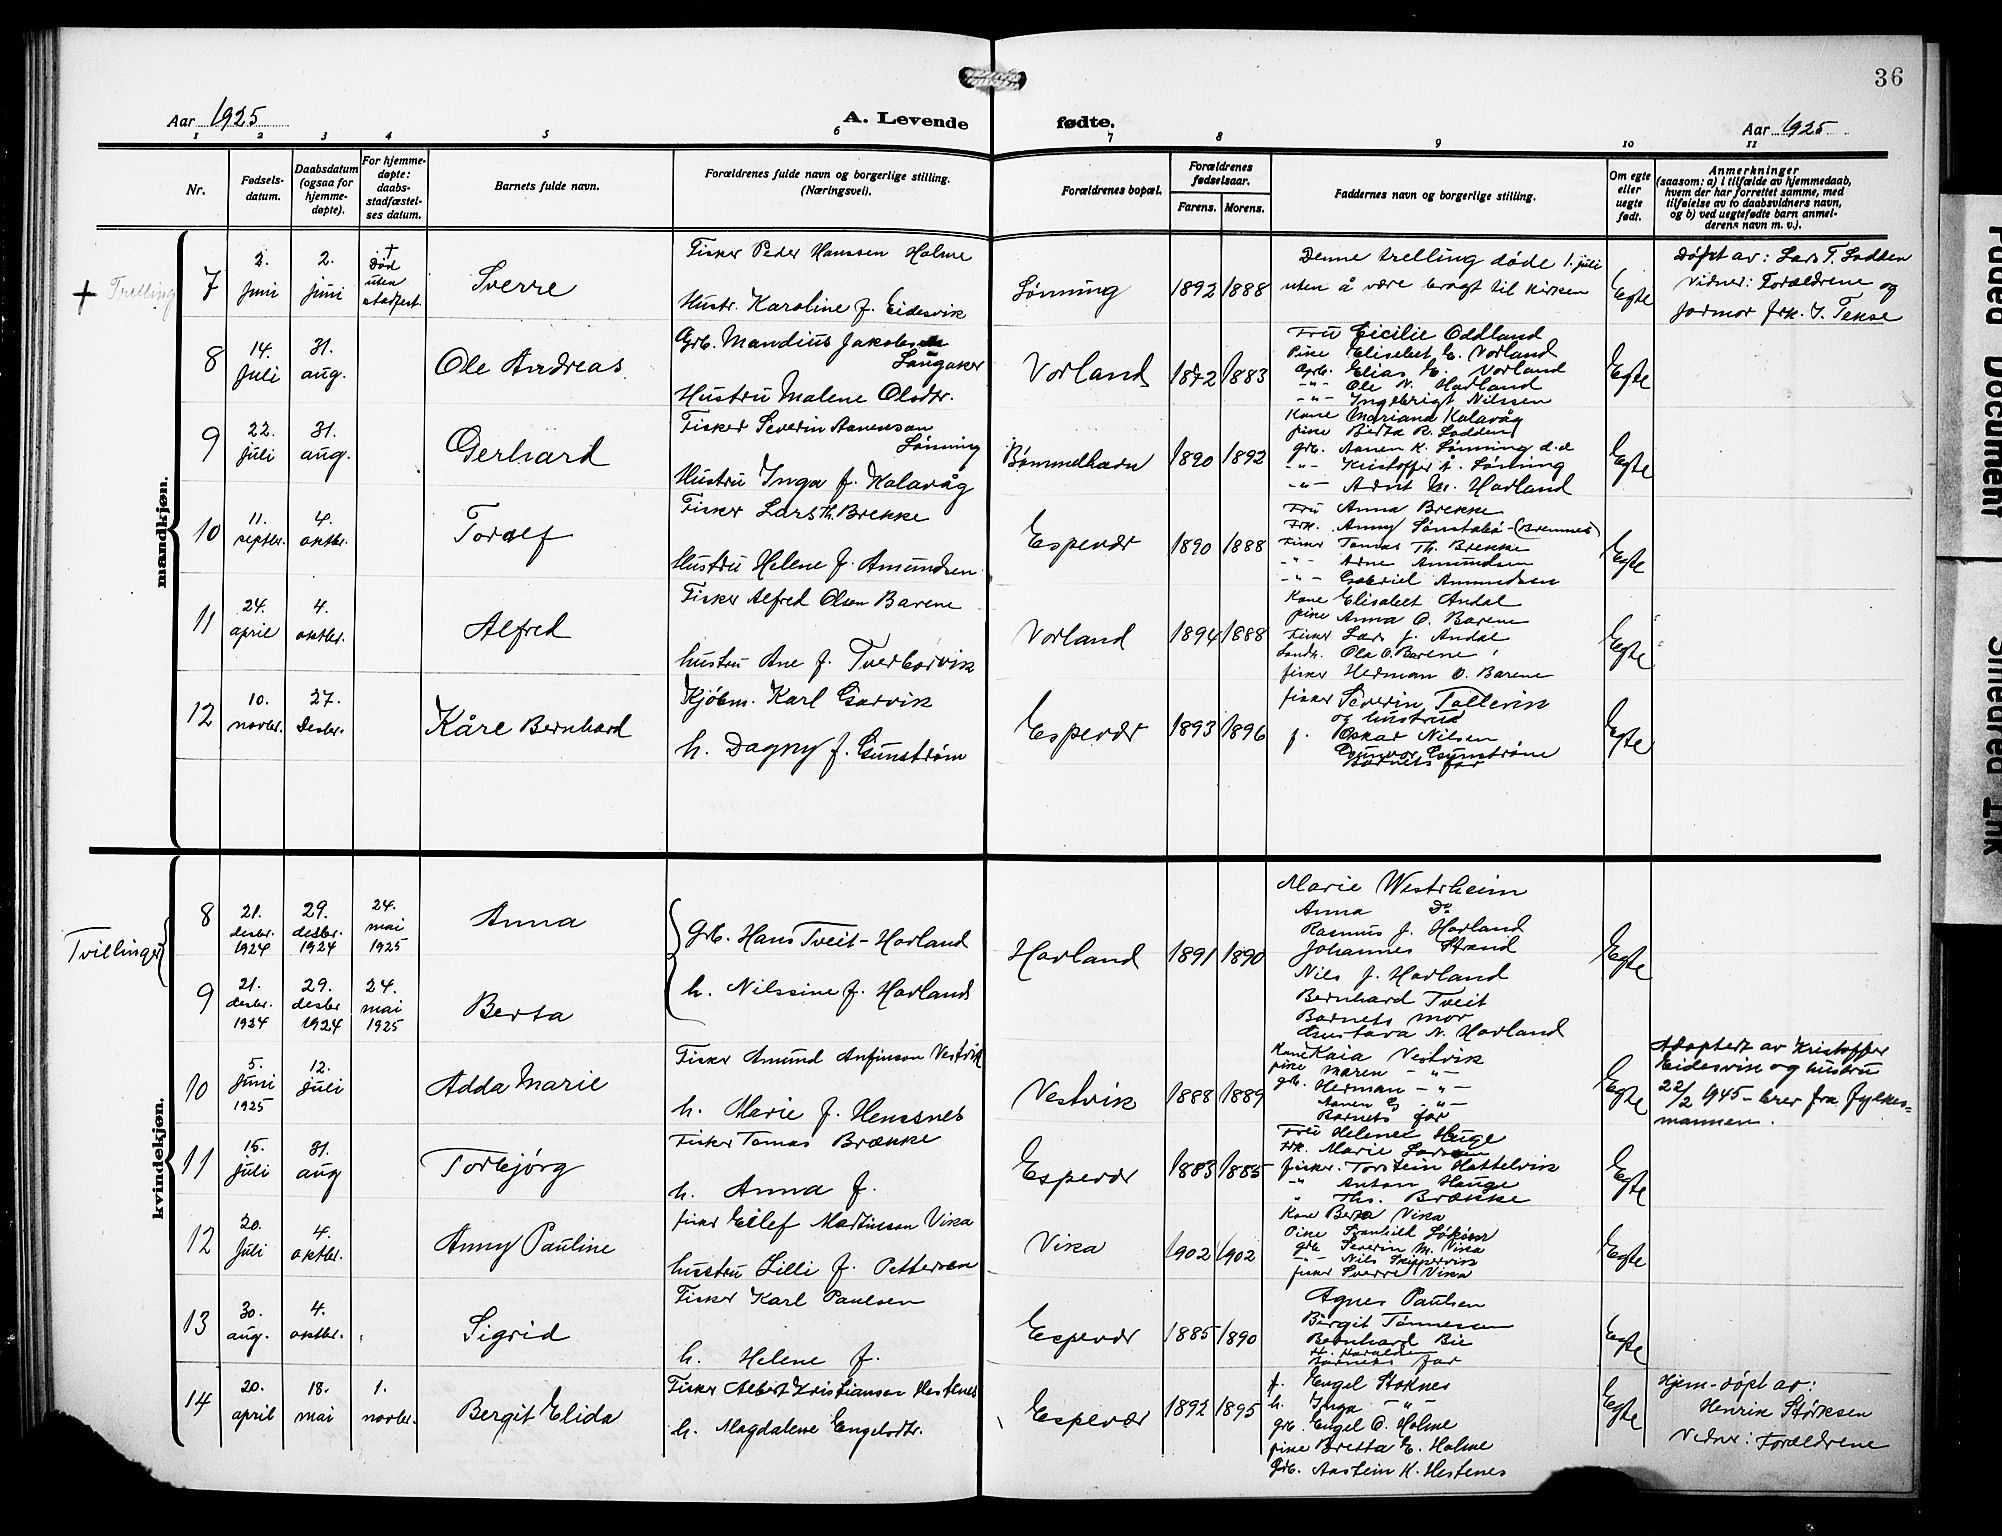 36
Aar 1925
A. Levende fødte.
Aar 1925
1 2 3 4 5 6 7 8 9 10 11
Nr.
Fødsels-
datum.
Daabsdatum
(ogsaa for
hjemme-
døpte).
For hjemme-
døpte:
daabs-
stadfæstel-
ses datum.
Barnets fulde navn.
Forældrenes fulde navn og borgerlige stilling.
(Næringsvei).
Forældrenes bopæl.
Forældrenes
fødselsaar.
Farens. Morens.
Faddernes navn og borgerlige stilling.
Om egte
eller
uegte
født.
Anmerkninger
(saasom: a) i tilfælde av hjemmedaab,
hvem der har forrettet samme, med
tilføielse av to daabsvidners navn,
og b) ved uegtefødte barn anmel-
derens navn m. v.).
mandkjøn.
+ Trelling
7
2.
juni
2.
juni
†
Død
uten
stadfest.
Sverre
Fisker Peder Hanssen Holme
Hustr. Karoline f. Eidesvik
Lønning
1892 1888
Denne trelling døde 1. juli
uten å være bragt til kirken
Egte
Døpt av: Lars T. Lodden
Vidner: Forældrene og
jormor frk. J. Tekse
8
14.
juli
31.
aug.
Ole Andreas
Grb. Mandius Jakobsen
Laugaker
Hustru Malene Olsdtr.
Vorland
1872 1883
Fru Cicilie Oddland
Pike Elisabet E. Vorland
Grb. Elias E. Vorland
-"- Ole N. Havland
-"- Ingebrigt Nilssen
Egte
9
22.
juli
31.
aug.
Gerhard
Fisker Severin Aanensen
Lønning
Hustru Inga f. Kalavåg
Bømmelhavn
1890 1892
Kone Mariane Kalavåg
pike Berta R. Lodden
grb. Aanen K. Lønning d.d
-"- Kristoffer A. Lønning
-"- Arnt M. Havland
Egte
10
11.
septbr.
4.
oktbr.
Toralf
Fisker Lars Th. Brekke
Hustru Helene f. Amundsen
Espevær
1890 1888
Fru Anna Brekke
Frk. Anny Lønstabø (Bremnes)
Fisker Tomas Th. Brekke
-"- Arne Amundsen
-"- Gabriel Amundsen
Egte
11
24.
april
4.
oktbr.
Alfred
Fisker Alfred Olsen Barene
hustru Ane f. Tverborvik
Vorland
1894 1888
Kone Elisabet Andal
pike Anna O. Barene
Fisker Lars J. Andal
Landh. Ola O. Barene
fisker Herman O. Barene
Egte
12
10.
novbr.
27.
Desbr.
Kåre Bernhard
Kjøbm. Karl Garvik
h. Dagny f. Gunstrøm
Espevær
1893 1896
fisker Severin Tollevik
og hustrud
f. Oskar Nilsen
Gunvor Gunstrøm
Barnets far
Egte
kvindekjøn.
Tvillinger
8
21.
desbr.
1924
29.
desbr.
1924
24.
mai
1925
Anna
Grb. Hans Tveit-Hovland
h. Nilssine f. Hovland
Hovland
1891 1890
Marie Westrheim
Anna Do
Rasmus J. Hovland
Johannes Strand
Egte
9
21.
desbr.
1924
29.
desbr
1924
24.
mai
1925
Berta
Nils J. Hovland
Bernhard Tveit
Barnets mor
Gustava N. Hovland
10
5.
Juni
1925
12.
juli
Adda Marie
Fisker Amund Anfinson Vestvik
h. Marie f. Henesnes
Vestvik
1888 1889
Kone Kaia Vestvik
pike Maren -"-
grb. Herman -"-
Aanen G -"-
Barnets far
Egte
Adoptert av Kristoffer
Eidesvik og hustru
22/2 1945 - brev fra fylkes=
mannen.
11
15.
juli
31.
aug
Torbjørg
Fisker Tomas Brække
h. Anna f.
Espevær
1883 1885
Fru Helene Hauge
Frk. Marie Larsen
fisker. Torstein Hattelvik
-"- Anton Hauge
" Ths. Brække
Egte
12
20.
juli
4.
oktbr.
Anny Pauline
fisker Eilef Martinsson Vika
hustru Lilli f. Pettersen
Vika
1902 1902
Kone Berta Vika
Pike
grb Severin M. Vika
-"- Nils Skippervik
fisker Sverre Vika
Egte
13
30.
aug.
4.
oktbr.
Sigrid
Fisker Karl Paulsen
h. Helene f.
Espevær
1885 1890
Agnes Paulsen
Birgit Tønnesen
Bernhard Bie
H. Haraldsen
Barnets far
Egte
14
20.
april
18.
mai
1.
novbr.
Bergit Elida
Fisker Albert Kristiansen Hestenes
h. Magdalene Engelsdtr.
Espevær
1892 1895
f. Engel Stoknes
h. Inga -"-
grb. Engel O. Holme
pike Bretta E. Holme
Grb. Aastein K. Hestenes
Egte
Hjem-døpt av:
Henrik Størksen
Vidner: Forældrene
Faded Document
Smeared Ink